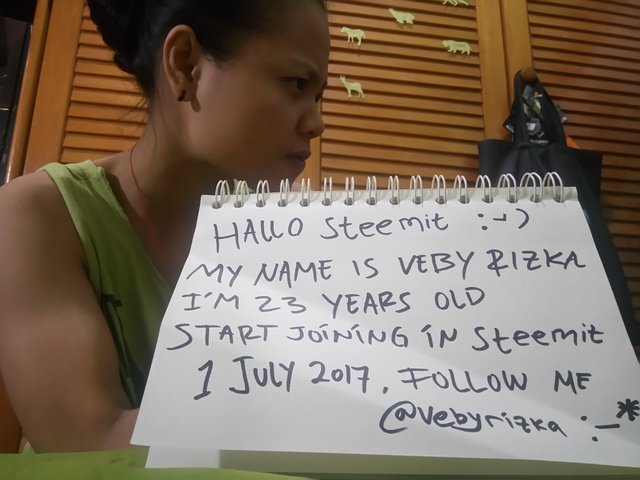 HALLO Steemit :-)
MY NAME IS VEBY RIZKA
I'M 23 YEARS OLD
START JOINING IN Steemit
1 JULY 2017. FOLLOW ME
@vebyrizka :-*